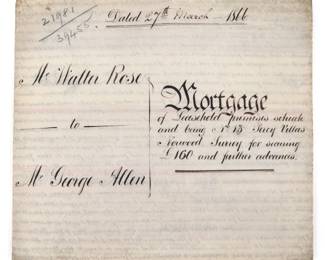 Dated 27th March 1866
21981
39455
Mr Walter Rose
to
Mr George Allen
Mortgage
of Leasehold premises situate
and being No 13 Villas
Norwood Surrey for securing
£160 and further advances.